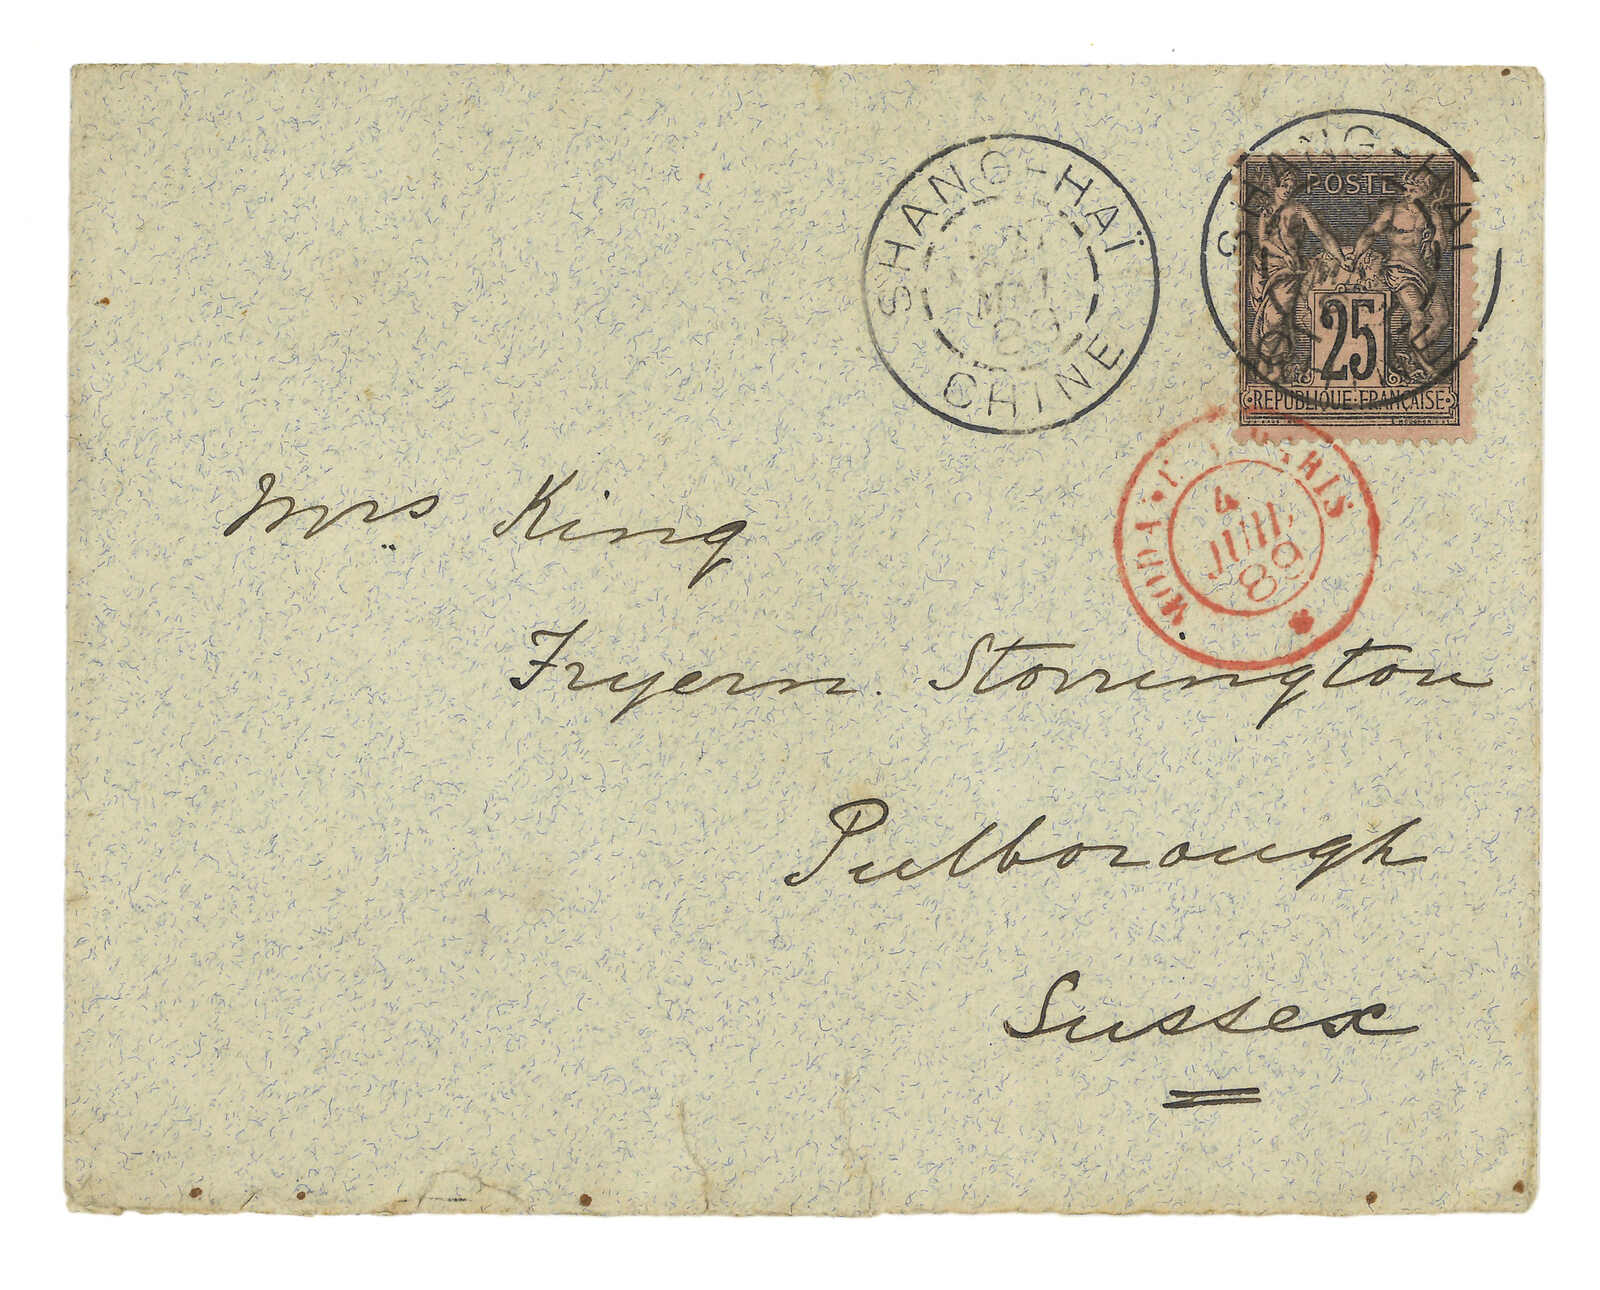 SHANG-HAÏ
MAI
89
CHINE
SHANG-HAÏ
POSTE
25
REPUBLIQUE·FRANÇAISE
4
JUIL
89
Mrs King
Fryern. Storrington
Pulborough
Sussex